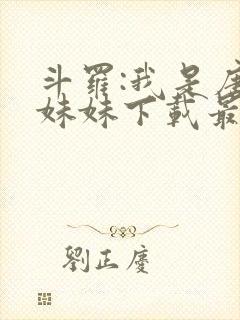 斗羅:我是唐
妹妹下載最
劉正慶